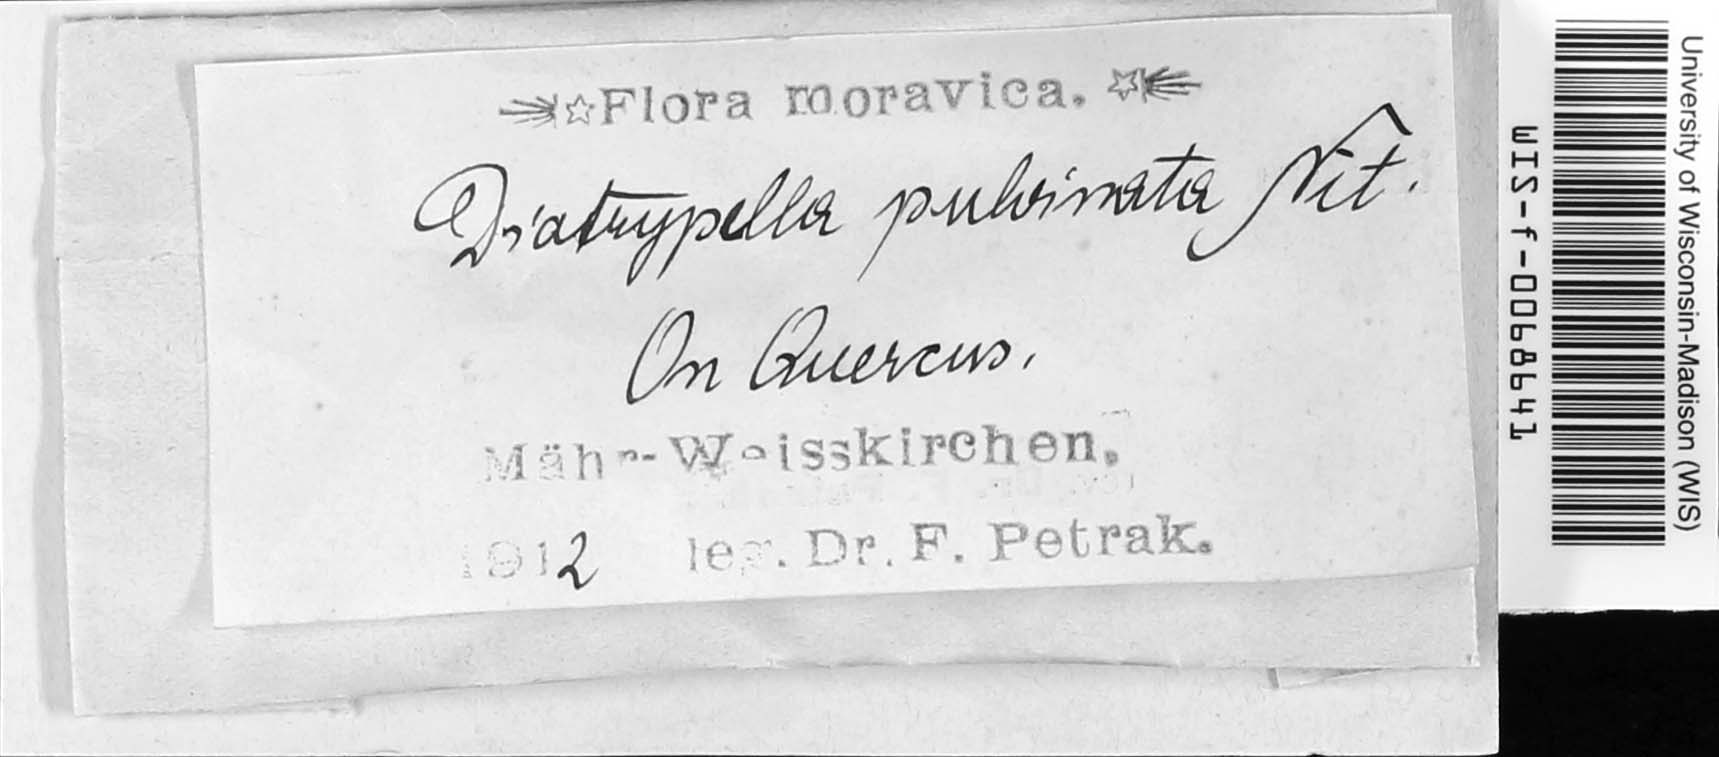 Flora moravica.
Diatrypella pulvinata Nit.
On Quercus.
Mähr-Weisskirchen.
1912 leg. Dr. F. Petrak.
University of Wisconsin-Madison (WIS)
WIS-f-0068641